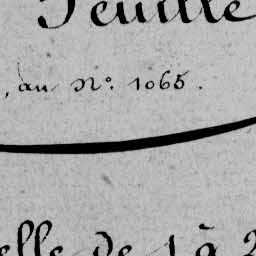 Feuille
, au N.° 1065.
elle de 1 à 2